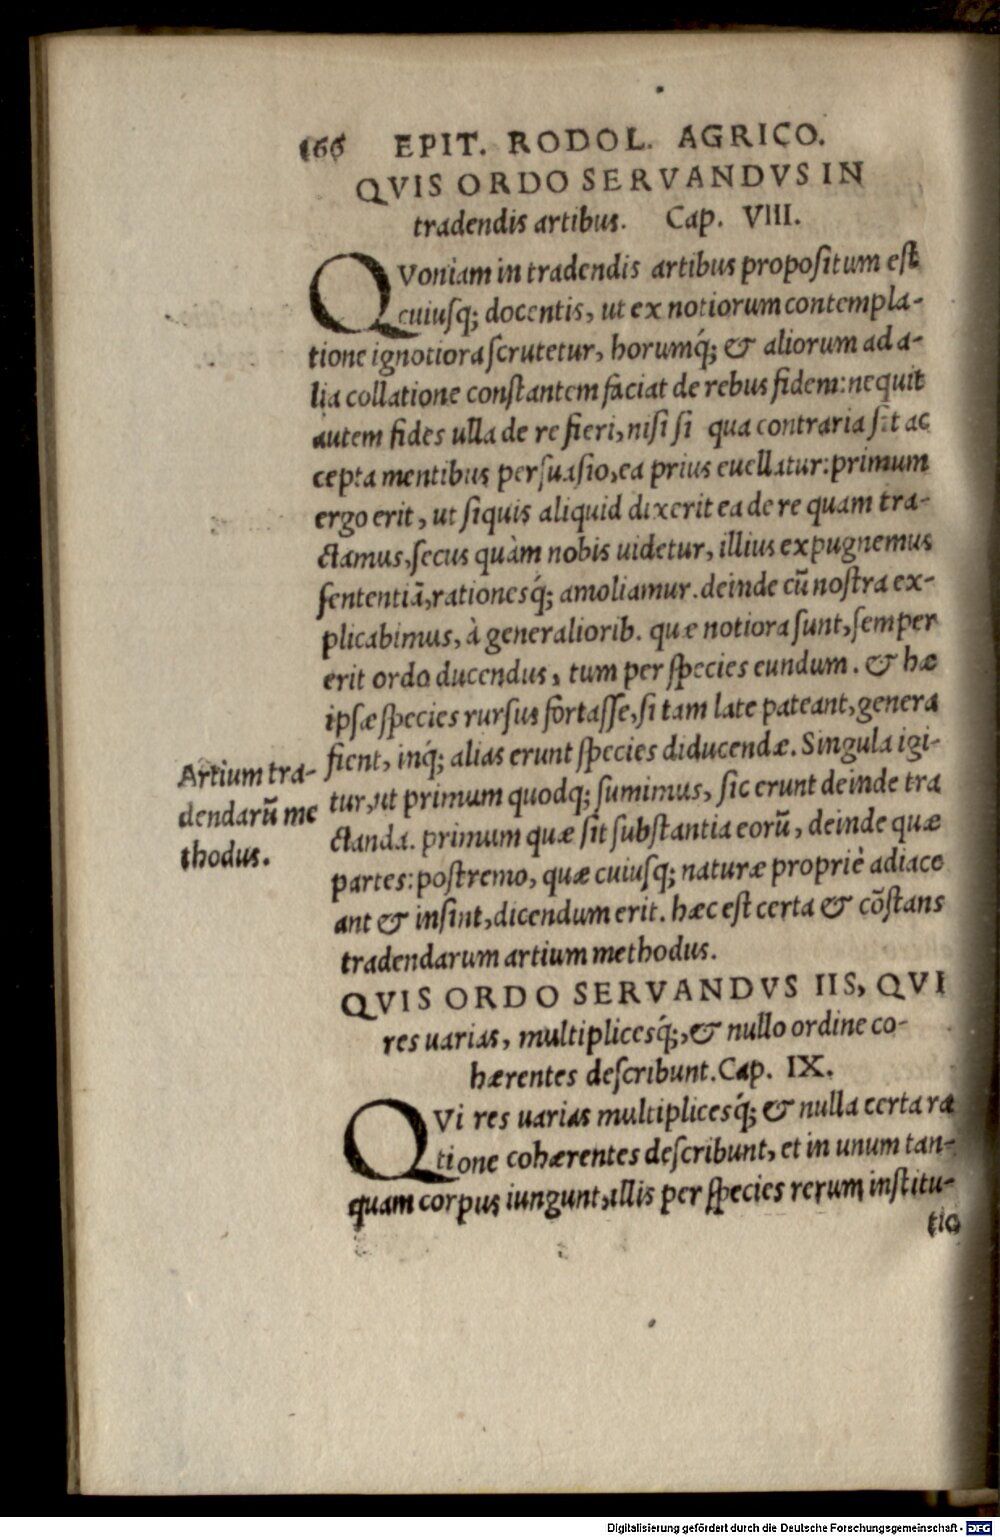 166 EPIT. RODOL. AGRICO.
QVIS ORDO SERVANDVS IN
tradendis artibus. Cap. VIII.
QVoniam in tradendis artibus propositum est
cuiusq; docentis, ut ex notiorum contempla-
tione ignotiora scrutetur, horumq́; & aliorum ad a-
lia collatione constantem faciat de rebus fidem: nequit
autem fides ulla de re fieri, nisi si qua contraria sit ac
cepta mentibus persuasio, ea prius euellatur: primum
ergo erit, ut siquis aliquid dixerit ea de re quam tra-
ctamus, secus quàm nobis uidetur, illius expugnemus
sententiã, rationesq́; amoliamur. deinde cũ nostra ex-
plicabimus, à generaliorib. quæ notiora sunt, semper
erit ordo ducendus, tum per species eundum. & hæ
ipsæ species rursus fortasse, si tam late pateant, genera
fient, inq́; alias erunt species diducendæ. Singula igi-
tur, ut primum quodq; sumimus, sic erunt deinde tra
ctanda. primum quæ sit substantia eorũ, deinde quæ
partes: postremo, quæ cuiusq; naturæ propriè adiace
ant & insint, dicendum erit. hæc est certa & cõstans
tradendarum artium methodus.
Artium tra-
dendarũ me
thodus.
QVIS ORDO SERVANDVS IIS, QVI
res uarias, multiplicesq́;, & nullo ordine co-
hærentes describunt. Cap. IX.
QVi res uarias multiplicesq́; & nulla certa ra
tione cohærentes describunt, et in unum tan-
quam corpus iungunt, illis per species rerum institu-
tio
Digitalisierung gefördert durch die Deutsche Forschungsgemeinschaft - DFG